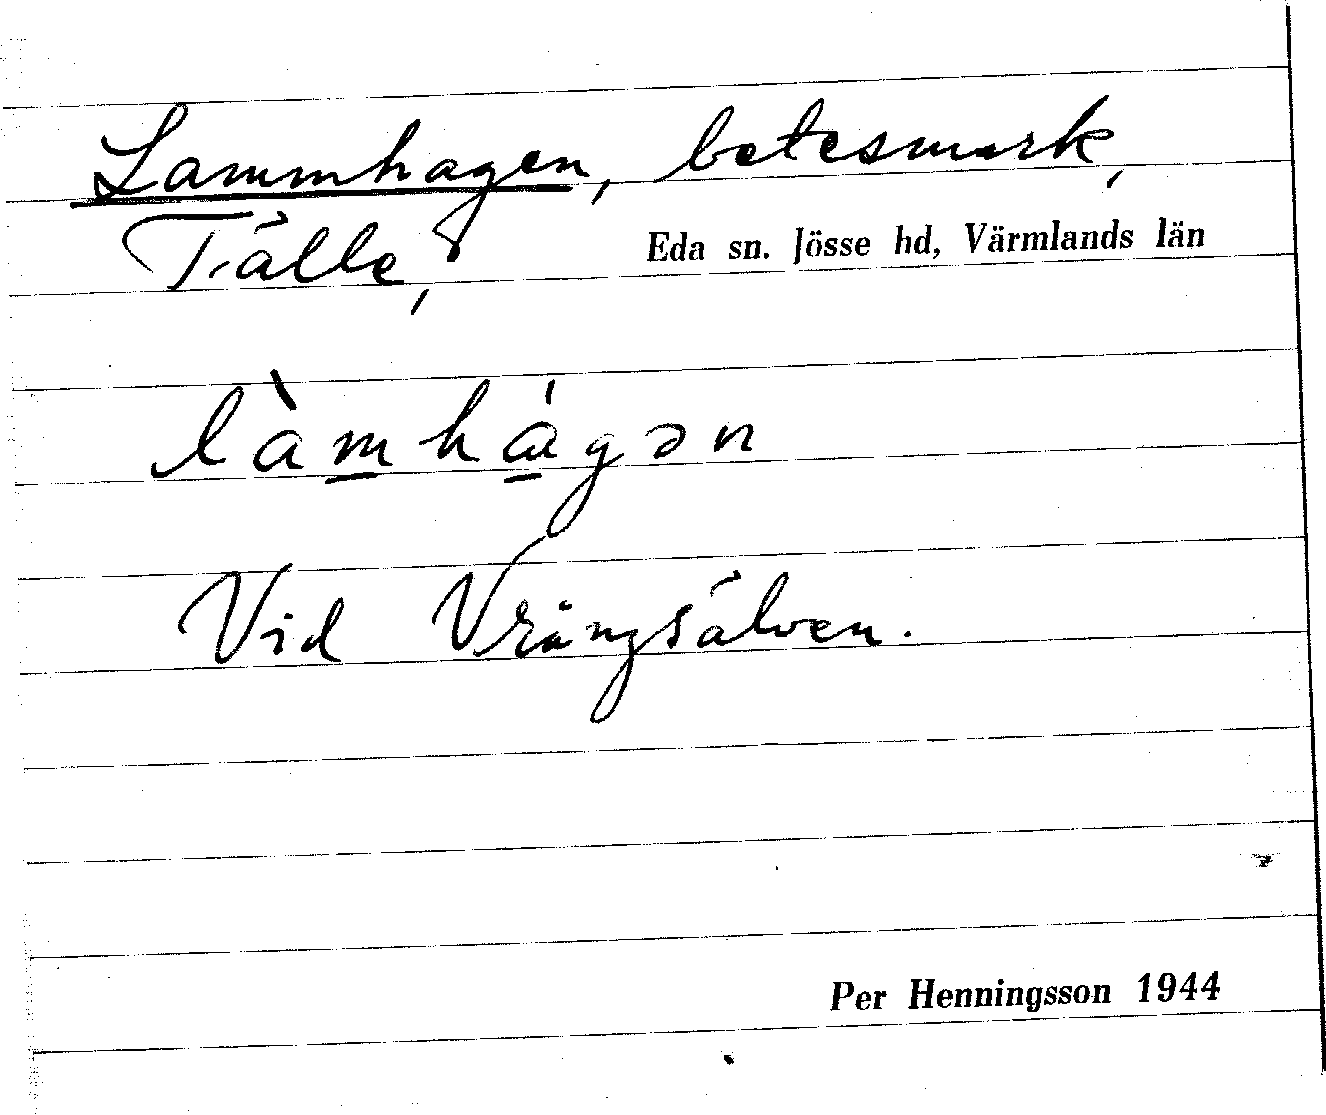 Lammhagen, betesmark,
Tälle, Eda sn. Jösse hd, Värmlands län
làm̲há̲gən
Vid Vrångsälven.
Per Henningsson 1944